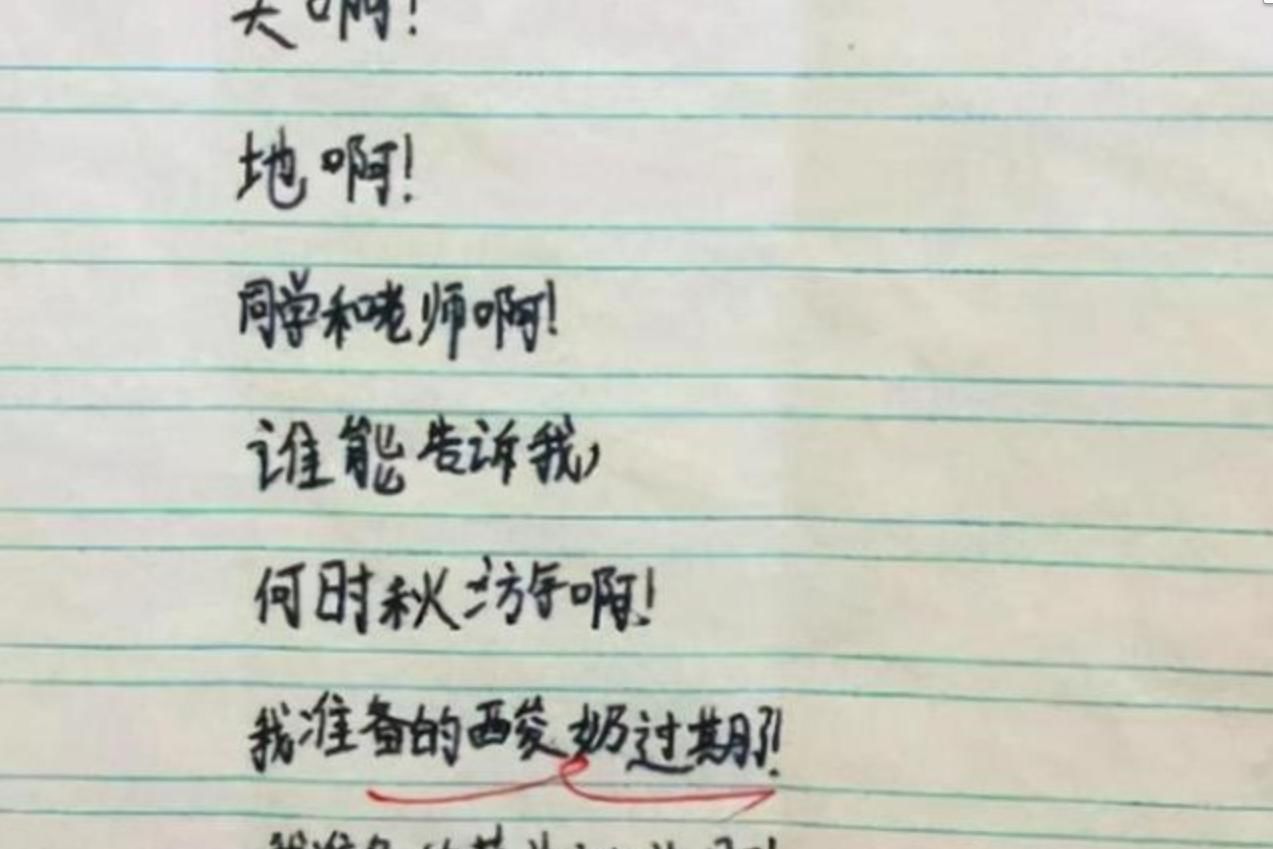 天啊!
地啊!
同学和老师啊!
谁能告诉我,
何时秋游啊!
我准备的酸奶过期了!
我准备的